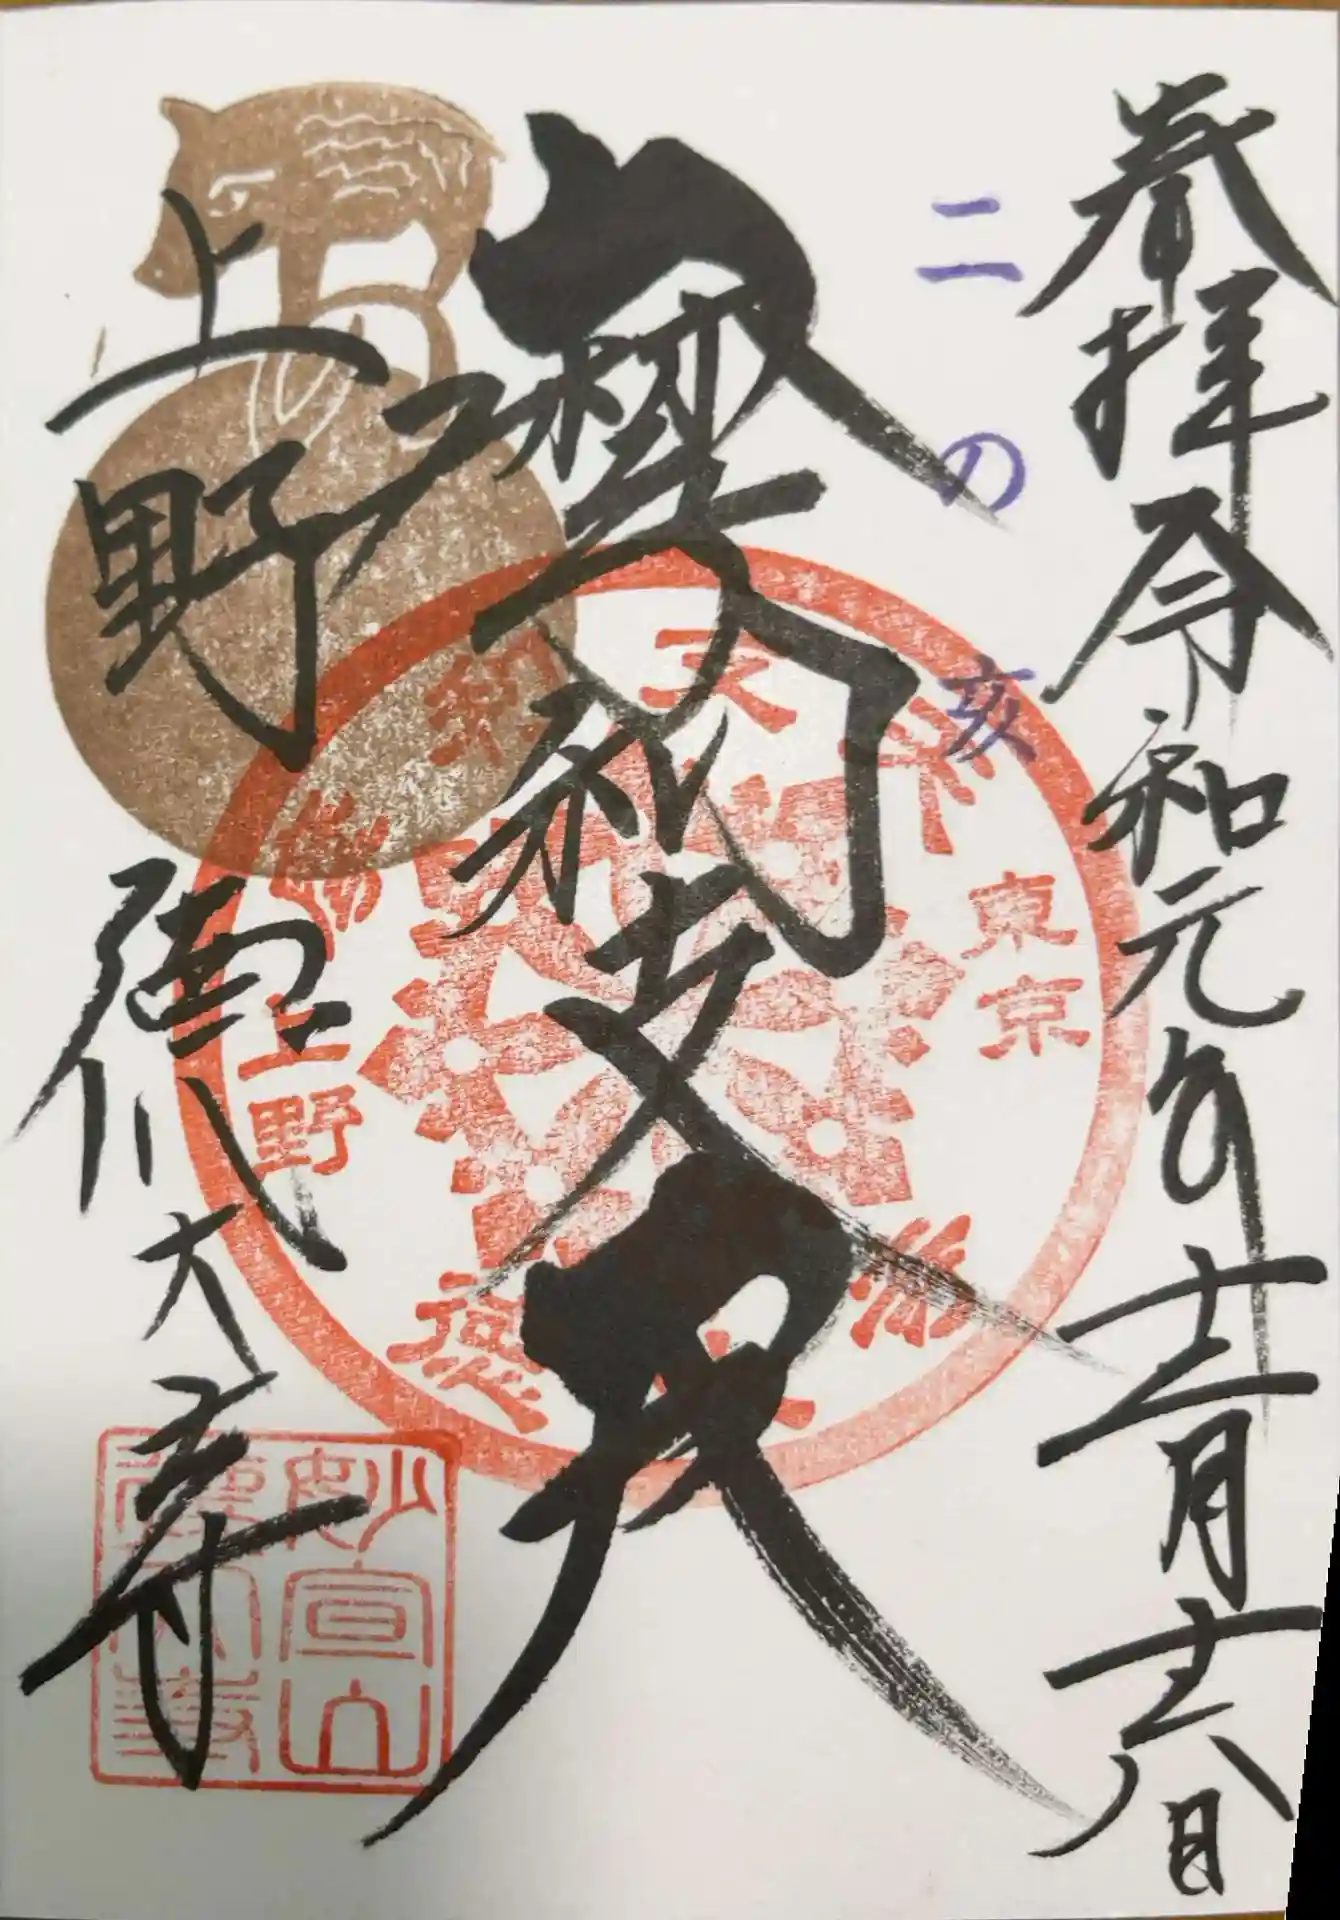 奉拝 令和元年十二月十六日
二の亥
摩利支天
上野 徳大寺
東京
上野
妙宣山
徳大寺